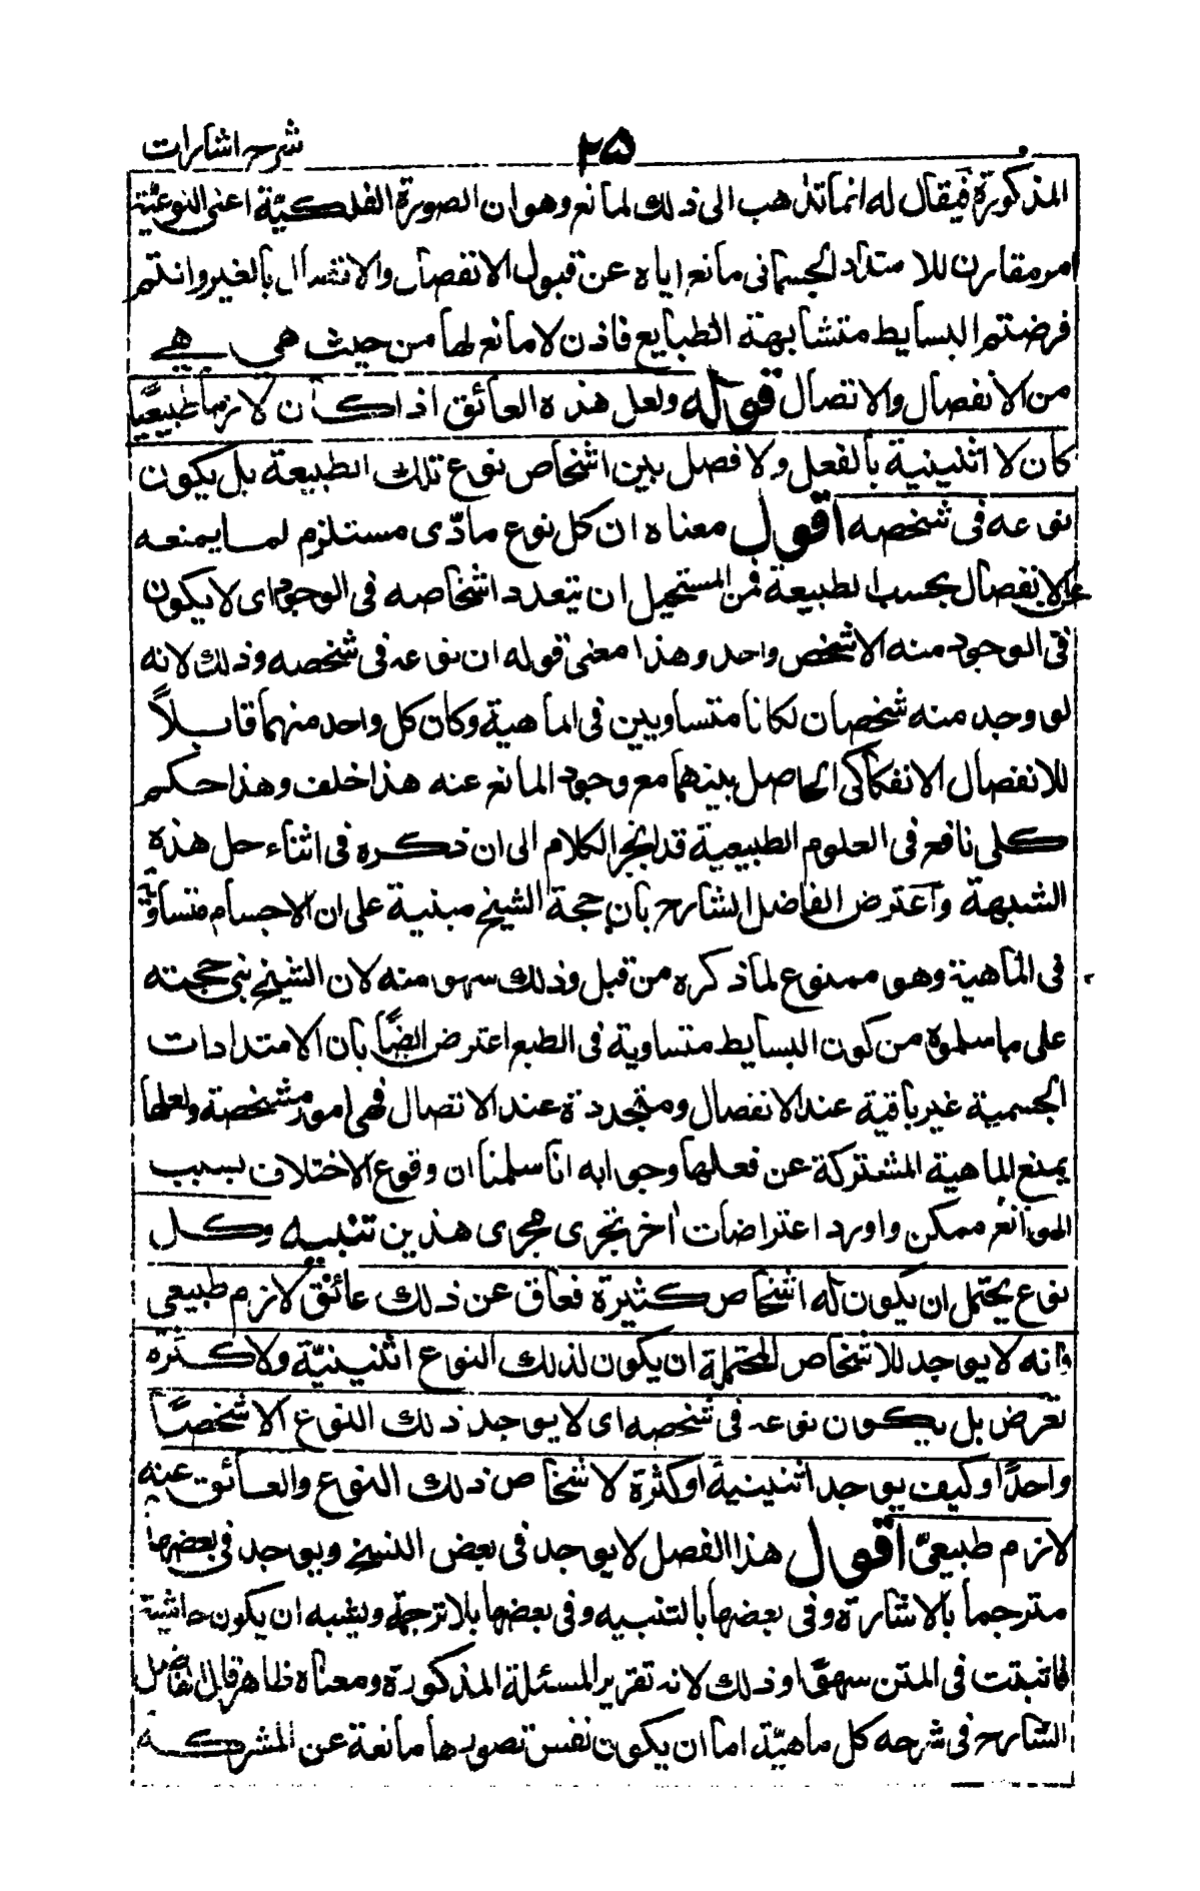 شرح اشارات
۲۵
المذكورة فيقال له انما تذهب الى ذلك لمانع وهو ان الصورة الفلكيّة اعنى النوعيّة
امر مقارن للامتداد الجسمانى مانع اياه عن قبول الانفصال والاتصال بالغير وانتم
فرضتم البسايط متشابهة الطبايع فاذن لا مانع لها من حيث هى هى
من الانفصال والاتصال قوله ولعل هذه العائق اذا كان لازما طبيعيّا
كان لا اثنينية بالفعل ولا فصل بين اشخاص نوع تلك الطبيعة بل يكون
نوعه فى شخصه اقول معناه ان كل نوع مادّى مستلزم لما يمنعه
عن الانفصال بحسب الطبيعة فمن المستحيل ان تتعدد اشخاصه فى الوجود اى لا يكون
فى الوجود منه الا شخص واحد وهذا معنى قوله ان نوعه فى شخصه وذلك لانه
لو وجد منه شخصان لكانا متساويين فى الماهية وكان كل واحد منهما قابلاً
للانفصال الانفكاكى الحاصل بينهما مع وجود المانع عنه هذا خلف وهذا حكم
كلى نافع فى العلوم الطبيعية قد انجر الكلام الى ان ذكره فى اثناء حل هذه
الشبهة واعترض الفاضل الشارح بان حجة الشيخ مبنية على ان الاجسام متساوية
فى الماهية وهو ممنوع لما ذكره من قبل وذلك سهو منه لان الشيخ بنى حجته
على ما سلموه من كون البسايط متساوية فى الطبع اعترض ايضًا بان الامتدادات
الجسمية غير باقية عند الانفصال ومتجددة عند الاتصال فهى امور متشخصة ولعلها
يمنع الماهية المشتركة عن فعلها وجوابه انا سلمنا ان وقوع الاختلاف بسبب
الموانع ممكن واورد اعتراضات اخر تجرى مجرى هذين تنبيه وكل
نوع يحتمل ان يكون له اشخاص كثيرة فعاق عن ذلك عائق لازم طبيعى
وانه لا يوجد للاشخاص المحتملة ان يكون لذلك النوع اثنينيّة ولا كثرة
تعرض بل يكون نوعه فى شخصه اى لا يوجد ذلك النوع الا شخصًا
واحدًا وكيف يوجد اثنينية او كثرة لاشخاص ذلك النوع والعائق عنه
لازم طبيعىّ اقول هذا الفصل لا يوجد فى بعض النسخ ويوجد فى بعضها
مترجما بالاشارة وفى بعضها بالتنبيه وفى بعضها بلا ترجمة ويشبه ان يكون حاشية
فاثبتت فى المتن سهوًا وذلك لانه تقرير المسئلة المذكورة ومعناه ظاهر قال الفاضل
الشارح فى شرحه كل ماهيّة اما ان يكون نفس تصورها مانعة عن الشركة